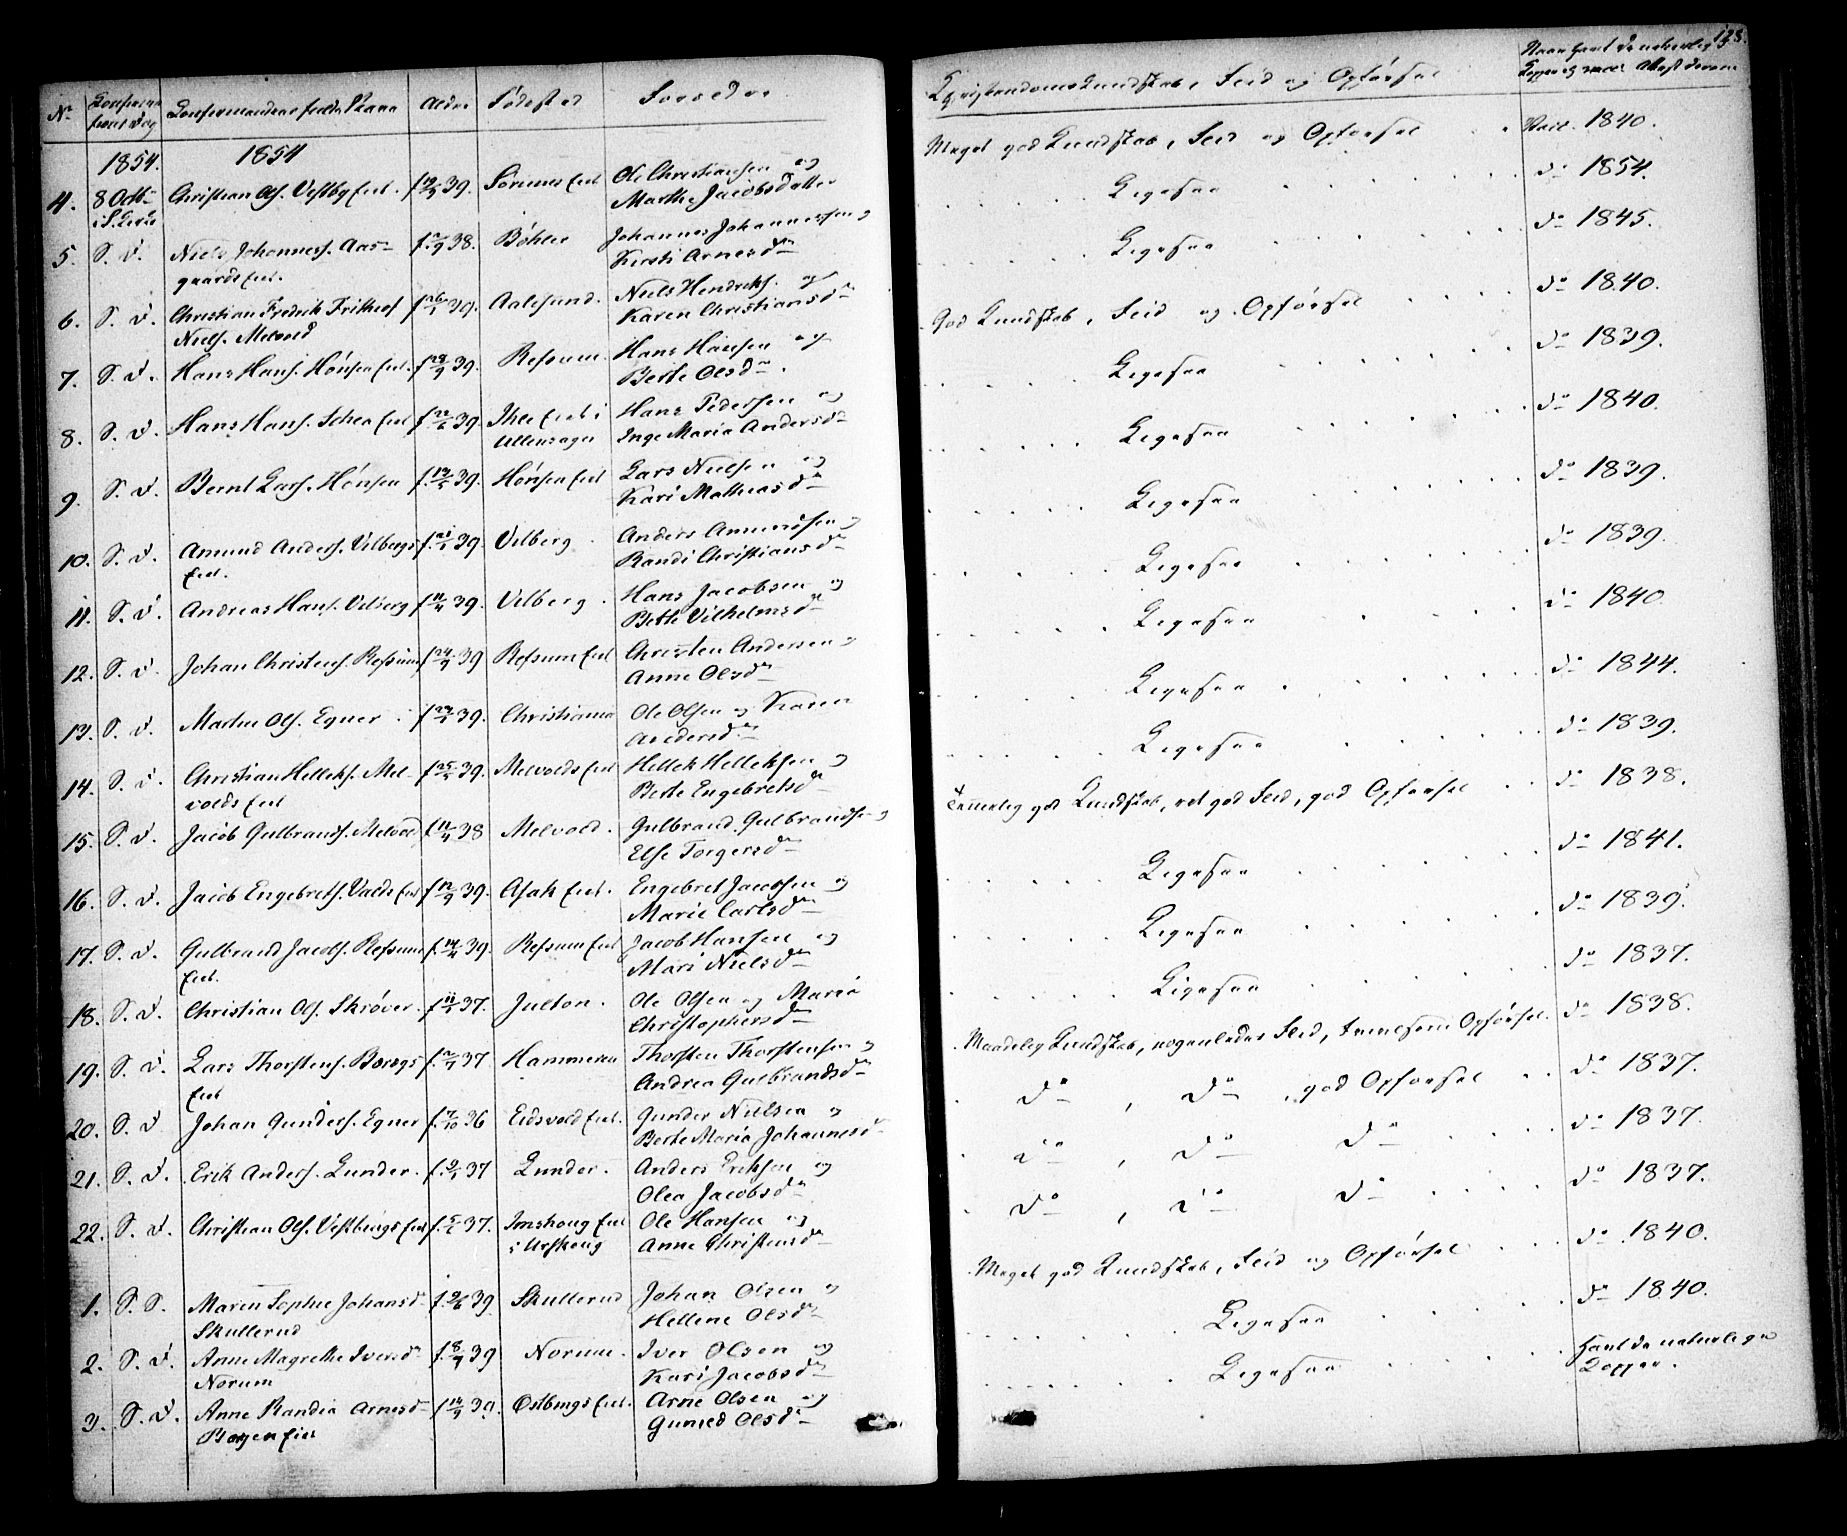 128.
No Confirmations Dag Confirmandens fulde Navn Alder Födested Forældre
Christendoms Kundskab, Flid og Opförsel
1854. 1854
4. 8 Octb. Christian Ols. Vestby Eiet. f. 39. Sörumseiet Ole Christiansen og
Marthe Jacobsdatter
Meget god Kundskab, Flid og Opförsel Vacc. 1840.
5. S. D. Niels Johanness. Aas-
gaardseiet. f. 38. Böhler Johannes Johannessen og
Kirsti Arnesdr
Ligesaa do 1854.
6. S. D. Christian Fredrik Frithcof
Niels. Melvold f. 39. Aalesund. Niels Hendriks. og
Karen Christiansdr
Ligesaa do 1845.
7. S. D. Hans Hans. Hönsen Eiet. f. 39. Refsum. Hans Hansen og
Berte Olsdr.
God Kundskab, Flid og Opförsel do 1840.
8. S. D. Hans Hans. Schea Eiet f. 39. Ihle Eiet i
Ullensager Hans Pedersen og
Inge Maria Andersdr
Ligesaa do 1839.
9. S. D. Bernt Lars. Hönsen f. 39. Hönsen Eiet Lars Nielsen og
Kari Mathiasdr
Ligesaa do 1840.
10. S. D. Amund Anders. Vilbergs
Eiet. f. 39. Vilberg Anders Amundsen og
Randi Christiansdr
Ligesaa do 1839.
11. S. D. Andreas Hans. Vilberg f. 11/4 39. Vilberg Hans Jacobsen og
Berte Vilhelmsdr
Ligesaa do 1839.
12. S. D. Johan Christens. Refsum f. 39 Refsum Eiet Christen Andersen og
Anne Olsdr
Ligesaa do 1840
13. S. D. Martin Ols. Egner f. 39. Christiania Ole Olsen og Karen
Andersdr
Ligesaa do 1844.
14. S. D. Christian Helleks. Mel-
volds Eiet f. 39. Melvolds Eiet Hellek Helleksen og
Berte Engebretsdr
Ligesaa do 1839.
15. S. D. Jacob Gulbrands. Melvold f. 38 Melvold. Gulbrand Gulbrandsen og
Else Torgersdr
Temmelig god Kundskab, ret god Flid, god Opförsel do 1838.
16. S. D. Jacob Engebrets. Valds Eiet f. 39. Asak Eiet. Engebret Jacobsen og
Marie Carlsdr
Ligesaa do 1841.
17. S. D. Gulbrand Jacobs. Refsum
Eiet. f. 39. Refsum Eiet Jacob Hansen og
Mari Nielsdr
Ligesaa do 1839.
18. S. D. Christian Ols. Skröver. f. 37. Julton. Ole Olsen og Maria
Christophersdr
Ligesaa do 1837.
19. S. D. Lars Thorstens. Borgs
Eiet f. 37 Hammeren Thorsten Thorstensen og
Andrea Gulbrandsdr
Maadelig Kundskab, nogenledes Flid, Opförsel. do 1838.
20. S. D Johan Gunders. Egner f. 7/10 36 Eidsvold Eiet. Gunder Nielsen og
Berte Maria Johannesdr
do , do , god Opförsel do 1837.
21. S. D. Erik Anders. Lunder. f. 37 Lunder. Anders Eriksen og
Olea Jacobsdr
do , do do do 1837.
22. S. D. Christian Ols. Vestbyngs Eiet f. 37. Imshoug Eiet
i Urskoug Ole Hansen og
Anne Christensdr
do , do do do 1837.
1. S. D. Maren Sophie Johansdr
Skullerud f. 39 Skullerud Johan Olsen og
Hellene Olsdr
Meget god Kundskab, Flid og Opförsel do 1840.
2. S. D. Anne Magrethe Iversdr
Norum f. 39 Norum. Iver Olsen og
Kari Jacobsdr
Ligesaa do 1840.
3. S. D. Anne Randia Arnesdr
Borgen Eiet f. 39. Östbyngs Eiet. Arne Olsen og
Gunild Olsdr
Ligesaa havt de naturlige
Kopper.